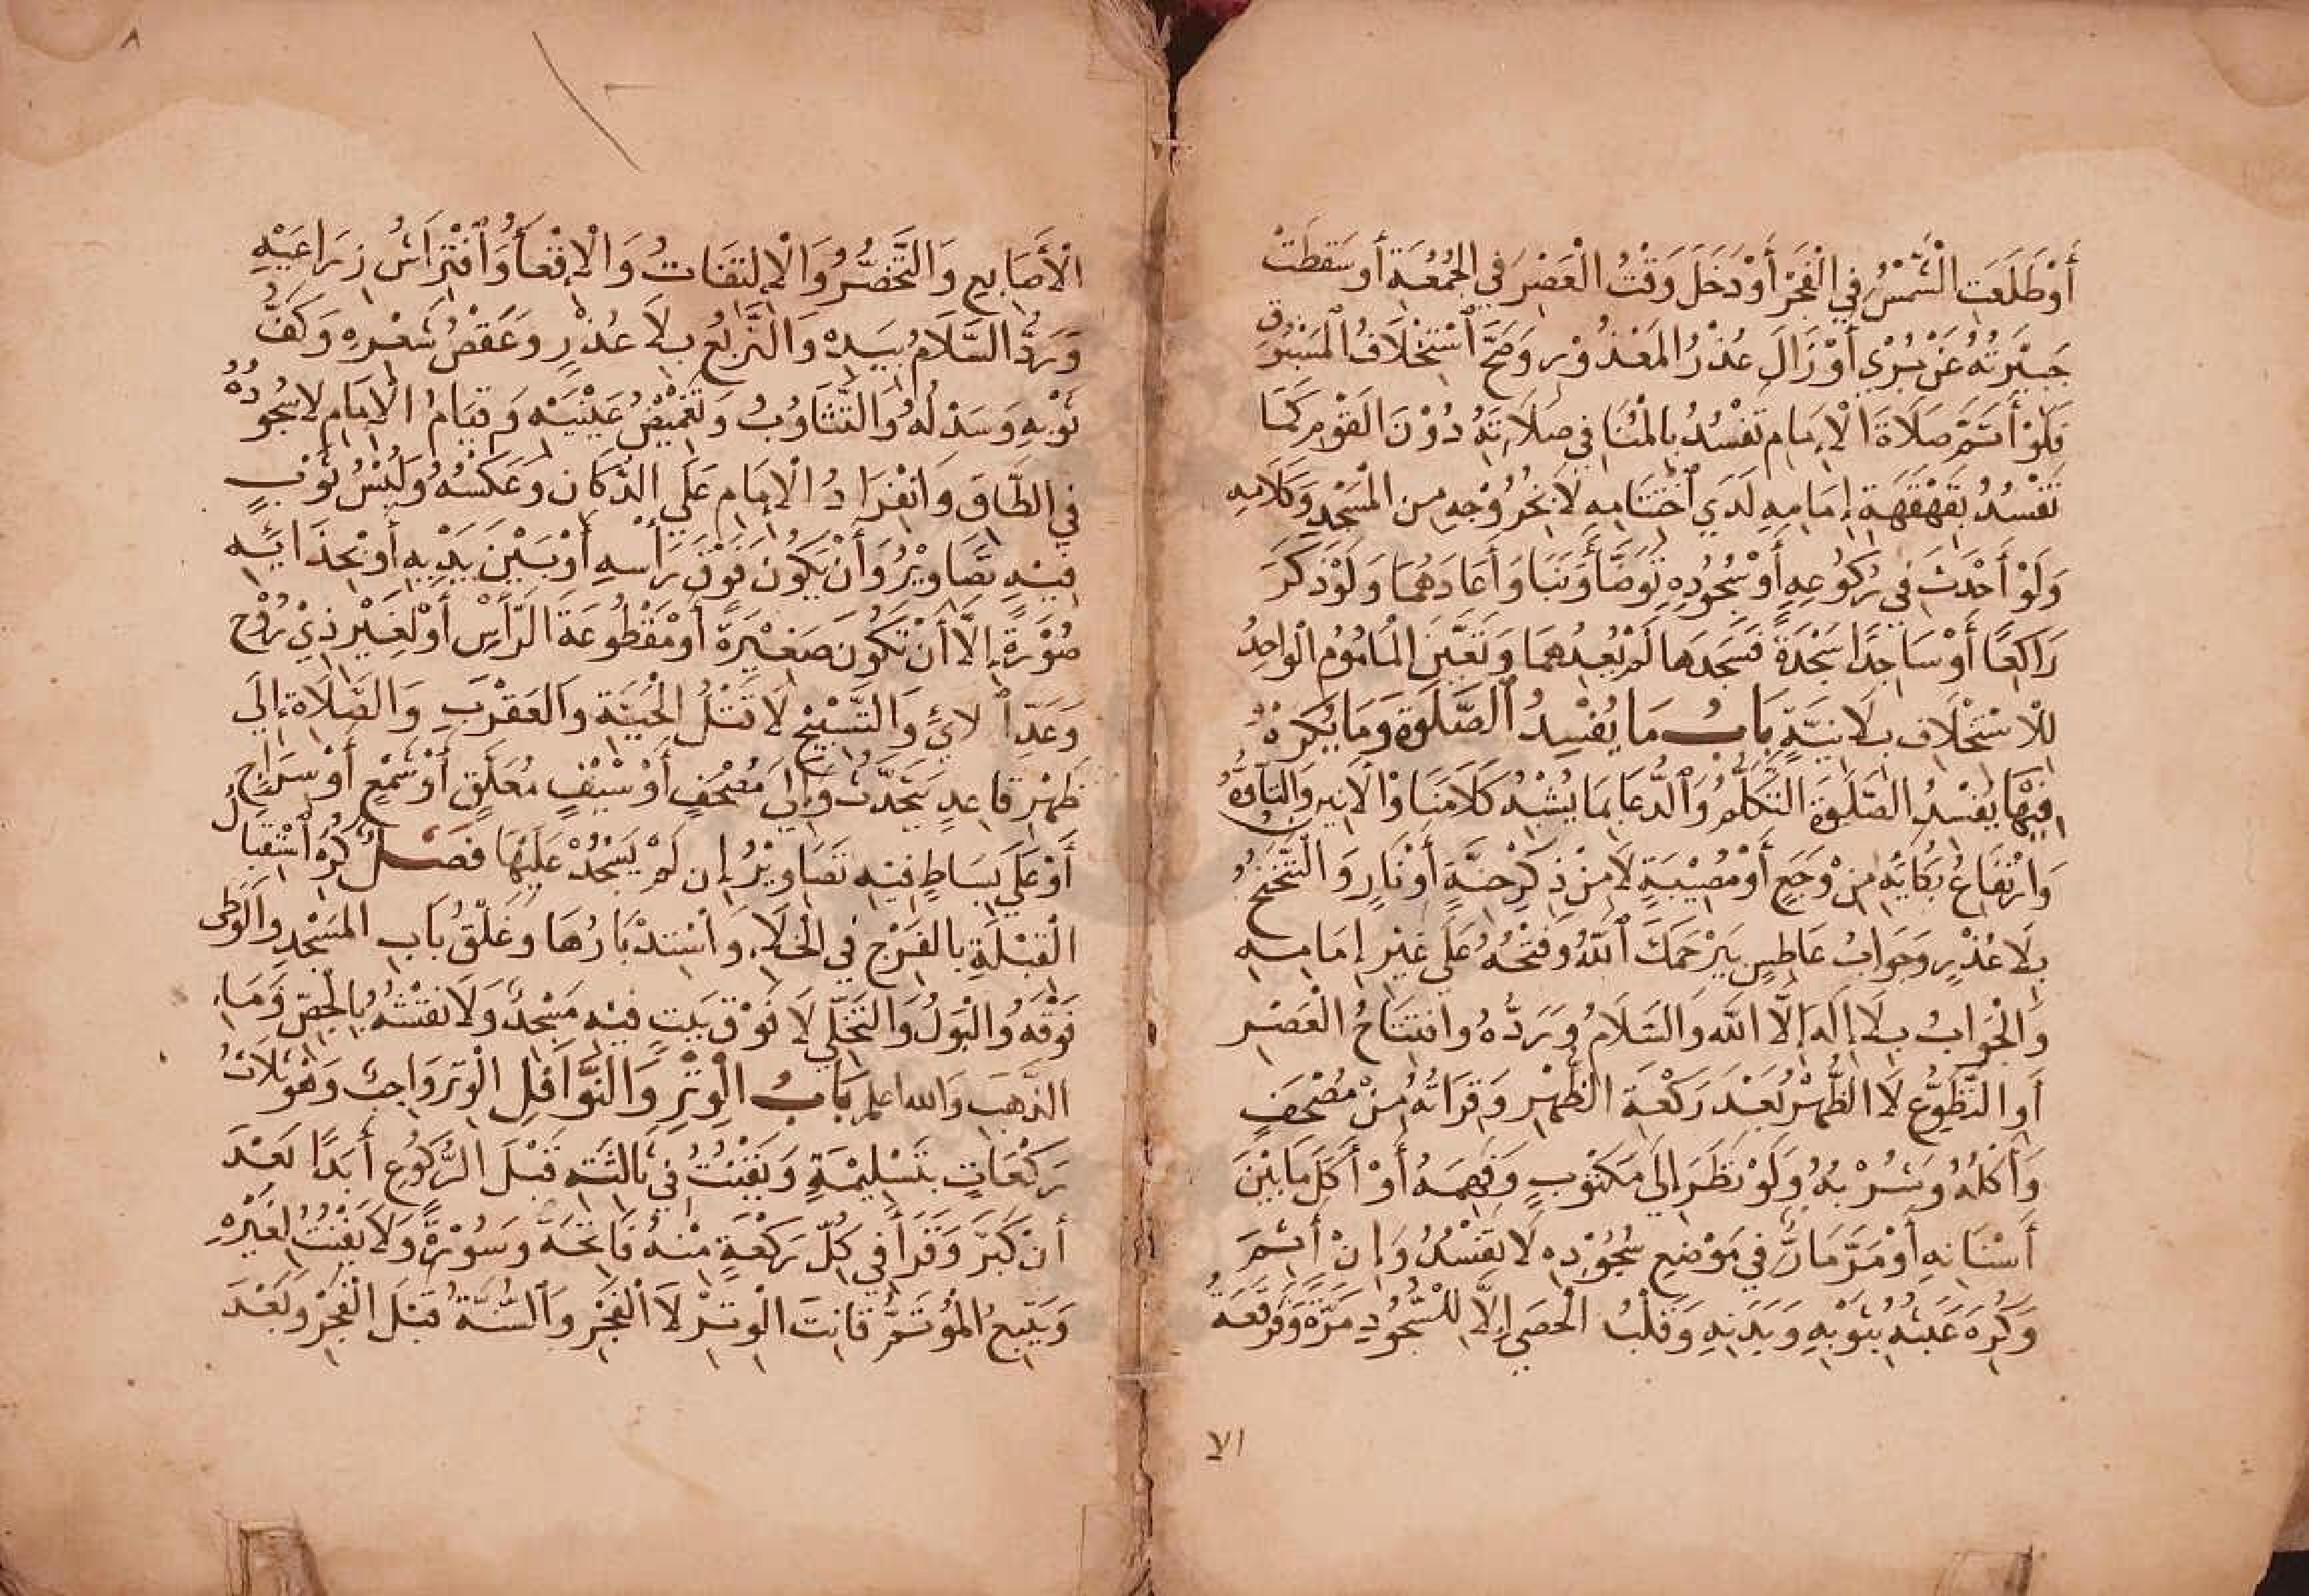 أَوْ طَلَعَتِ الشَّمْسُ فِي الْفَجْرِ أَوْ دَخَلَ وَقْتُ الْعَصْرِ فِي الْجُمُعَةِ أَو سَقَطَتْ
جَبِيْرَتُهُ عَنْ بُرْيٍ أَوْ زَالَ عُذْرُ الْمَعْذُوْرِ وَصَحَّ اسْتِخْلَافُ الْمَسْبُوْقِ
فَلَوْ أَتَمَّ صَلَاةَ الْإِمَامِ تَفْسُدُ بِالْمُنَافِي صَلَاتُهُ دُوْنَ الْقَوْمِ كَمَا
تَفْسُدُ بِقَهْقَهَةِ إِمَامِهِ لَدَي اخْتِتَامِهِ لَا بِخُرُوْجِهِ مِنَ الْمَسْجِدِ وَكَلَامِهِ
وَلَوْ أَحْدَثَ فِي رُكُوْعِهِ أَوْ سُجُوْدِهِ تَوَضَّأَ وَبَنَا وَأَعَادَهُمَا وَلَوْ ذَكَرَ
رَاكِعًا أَوْ سَاجِدًا سَجْدَةً فَسَجَدَهَا لَمْ يُعِدْهُمَا وَتَعَيَّنَ الْمَامُوْمُ الْوَاحِدُ
لِلْاسْتِخْلَافِ بِلَا نِيَّةٍ بَابُ مَا يُفْسِدُ الصَّلٰوةَ وَمَا يُكْرَهُ
فِيْهَا يُفْسِدُ الصَّلٰوةَ التَّكَلُّمُ وَالدُّعَا بِمَا يُشْبِهُ كَلَامَنَا وَالْأَنِيْنُ وَالتَّأَوُّهُ
وَارْتِفَاعُ بُكَائِهِ مِنْ وَجَعٍ أَوْ مُصِيْبَةٍ لَا مِنْ ذِكْرِ جَنَّةٍ أَوْ نَارٍ وَالتَّنَحْنُحُ
بِلَا عُذْرٍ وَجَوَابُ عَاطِسٍ يَرْحَمُكَ اللّٰهُ وَفَتْحُهُ عَلَى غَيْرِ إِمَامِهِ
وَالْجَوَابُ بِلَا إِلَهَ إِلَّا اللّٰهُ وَالسَّلَامُ وَرَدُّهُ وَافْتِتَاحُ الْعَصْرِ
أَوِ التَّطَوُّعِ لَا الظُّهْرِ بَعْدَ رَكْعَةِ الظُّهْرِ وَقِرَاتُهُ مِنْ مُصْحَفٍ
وَأَكْلُهُ وَشُرْبُهُ وَلَوْ نَظَرَ إِلَى مَكْتُوْبٍ وَفَهِمَهُ أَوْ أَكَلَ مَا بَيْنَ
أَسْنَانِهِ أَوْ مَرَّ مَارٌّ فِي مَوْضِعِ سُجُوْدِهِ لَا تَفْسُدُ وَإِنْ أَثِمَ
وَكُرِهَ عَبَثُهُ بِثَوْبِهِ وَبَدَنِهِ وَقَلْبُ الْحَصَى إِلَّا لِلسُّجُوْدِ مَرَّةً وَفَرْقَعَةُ
الا
٨
الْأَصَابِعِ وَالتَّخَصُّرُ وَالْإِلْتِفَاتُ وَالْإِقْعَأُ وَافْتِرَاشُ ذِرَاعَيْهِ
وَرَدُّ السَّلَامِ بِيَدِهِ وَالتَّرَبُّعُ بِلَا عُذْرٍ وَعَقْصُ شَعْرِهِ وَكَفُّ
ثَوْبِهِ وَسَدْلُهُ وَالتَّثَاوُبُ وَتَغْمِيْضُ عَيْنَيْهِ وَقِيَامُ الْإِمَامِ لَا سُجُوْدُهُ
فِي الطَّاقِ وَانْفِرَادُ الْإِمَامِ عَلَي الدُّكَّانِ وَعَكْسُهُ وَلُبْسُ ثَوْبٍ
فِيْهِ تَصَاوِيْرُ وَأَنْ يَكُوْنَ فَوْقَ رَأْسِهِ أَوْ بَيْنَ يَدَيْهِ أَوْ بِحِذَائِهِ
صُوْرَةٌ إِلَّا أَنْ تَكُوْنَ صَغِيْرَةً أَوْ مَقْطُوْعَةَ الرَّأْسِ أَوْ لِغَيْرِ ذِيْ رُوْحٍ
وَعَدُّ الْآيِ وَالتَّسْبِيْحِ لَا قَتْلُ الْحَيَّةِ وَالْعَقْرَبِ وَالصَّلَاةُ إِلَى
ظَهْرِ قَاعِدٍ يَتَحَدَّثُ وَإِلَى مُصْحَفٍ أَوْ سَيْفٍ مُعَلَّقٍ أَوْ شَمْعٍ أَوْ سِرَاجٍ
أَوْ عَلَى بِسَاطٍ فِيْهِ تَصَاوِيْرُ إِنْ لَمْ يَسْجُدْ عَلَيْهَا فَصْلٌ كُرِهَ اسْتِقْبَالُ
الْقِبْلَةِ بِالْفَرْجِ فِي الْخَلَاءِ وَاسْتِدْبَارُهَا وَغَلْقُ بَابِ الْمَسْجِدِ وَالْوَطْى
فَوْقَهُ وَالْبَوْلُ وَالتَّخَلِّي لَا فَوْقَ بَيْتٍ فِيْهِ مَسْجِدٌ وَلَا نَقْشُهُ بِالْجِصِّ وَمَاءِ
الذَّهَبِ وَاللهُ اعلم بَابُ الْوِتْرِ وَالنَّوَافِلِ الْوِتْرُ وَاجِبٌ وَهُوَ ثَلَاثُ
رَكْعَاتٍ بِتَسْلِيْمَةٍ وَيَقْنُتُ فِي ثَالِثَتِهِ قَبْلَ الرُّكُوْعِ أَبَدًا بَعْدَ
أَنْ كَبَّرَ وَقَرَأَ فِي كُلِّ رَكْعَةٍ مِنْهُ فَاتِحَةً وَسُوْرَةً وَلَا يَقْنُتُ لِغَيْرِهِ
وَيَتْبَعُ الْمُؤْتَمُّ قَانِتَ الْوِتْرِ لَا الْفَجْرِ وَالسُّنَّةُ قَبْلَ الْفَجْرِ وَبَعْدَ